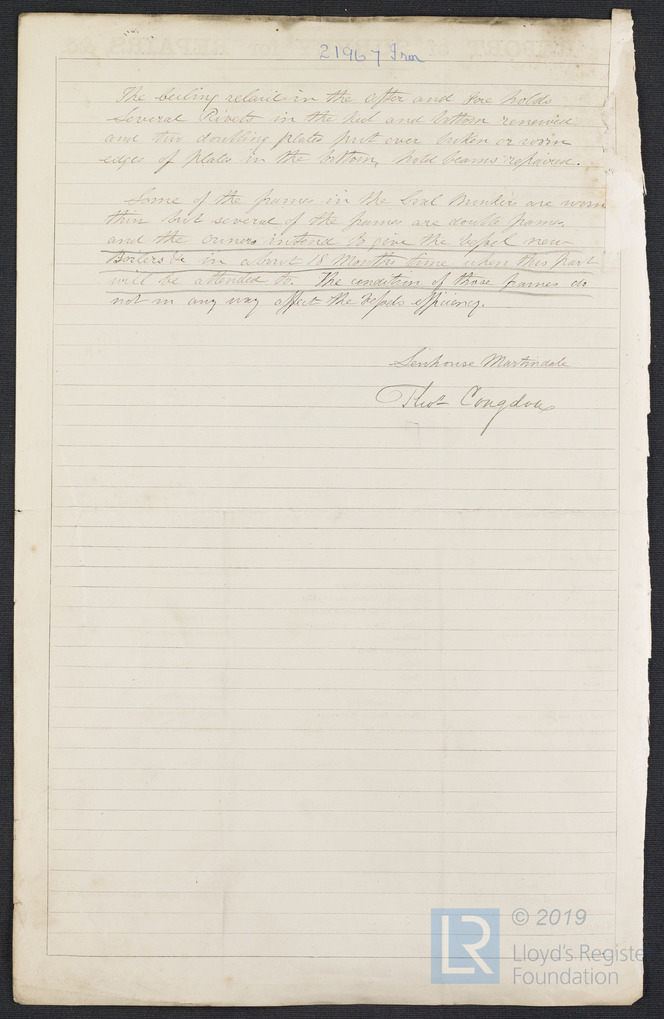 21967 Iron
The ceiling relaid in the after and fore holds
several Rivets in the keel and bottom renewed
and two doubling plates put over broken or worn
edges of plates in the bottom, hold beams repaired.
Some of the frames in the Coal Bunkers are worn
thin but several of the frames are double frames,
and the owners intend to give the vessel new
Boilers &c in about 18 Months time when this part
will be attended to. The condition of those frames do
not in any way affect the Vessels efficiency.
Senhouse Martindale
Thos Congdon
LR
© 2019
Lloyd's Registe
Foundation